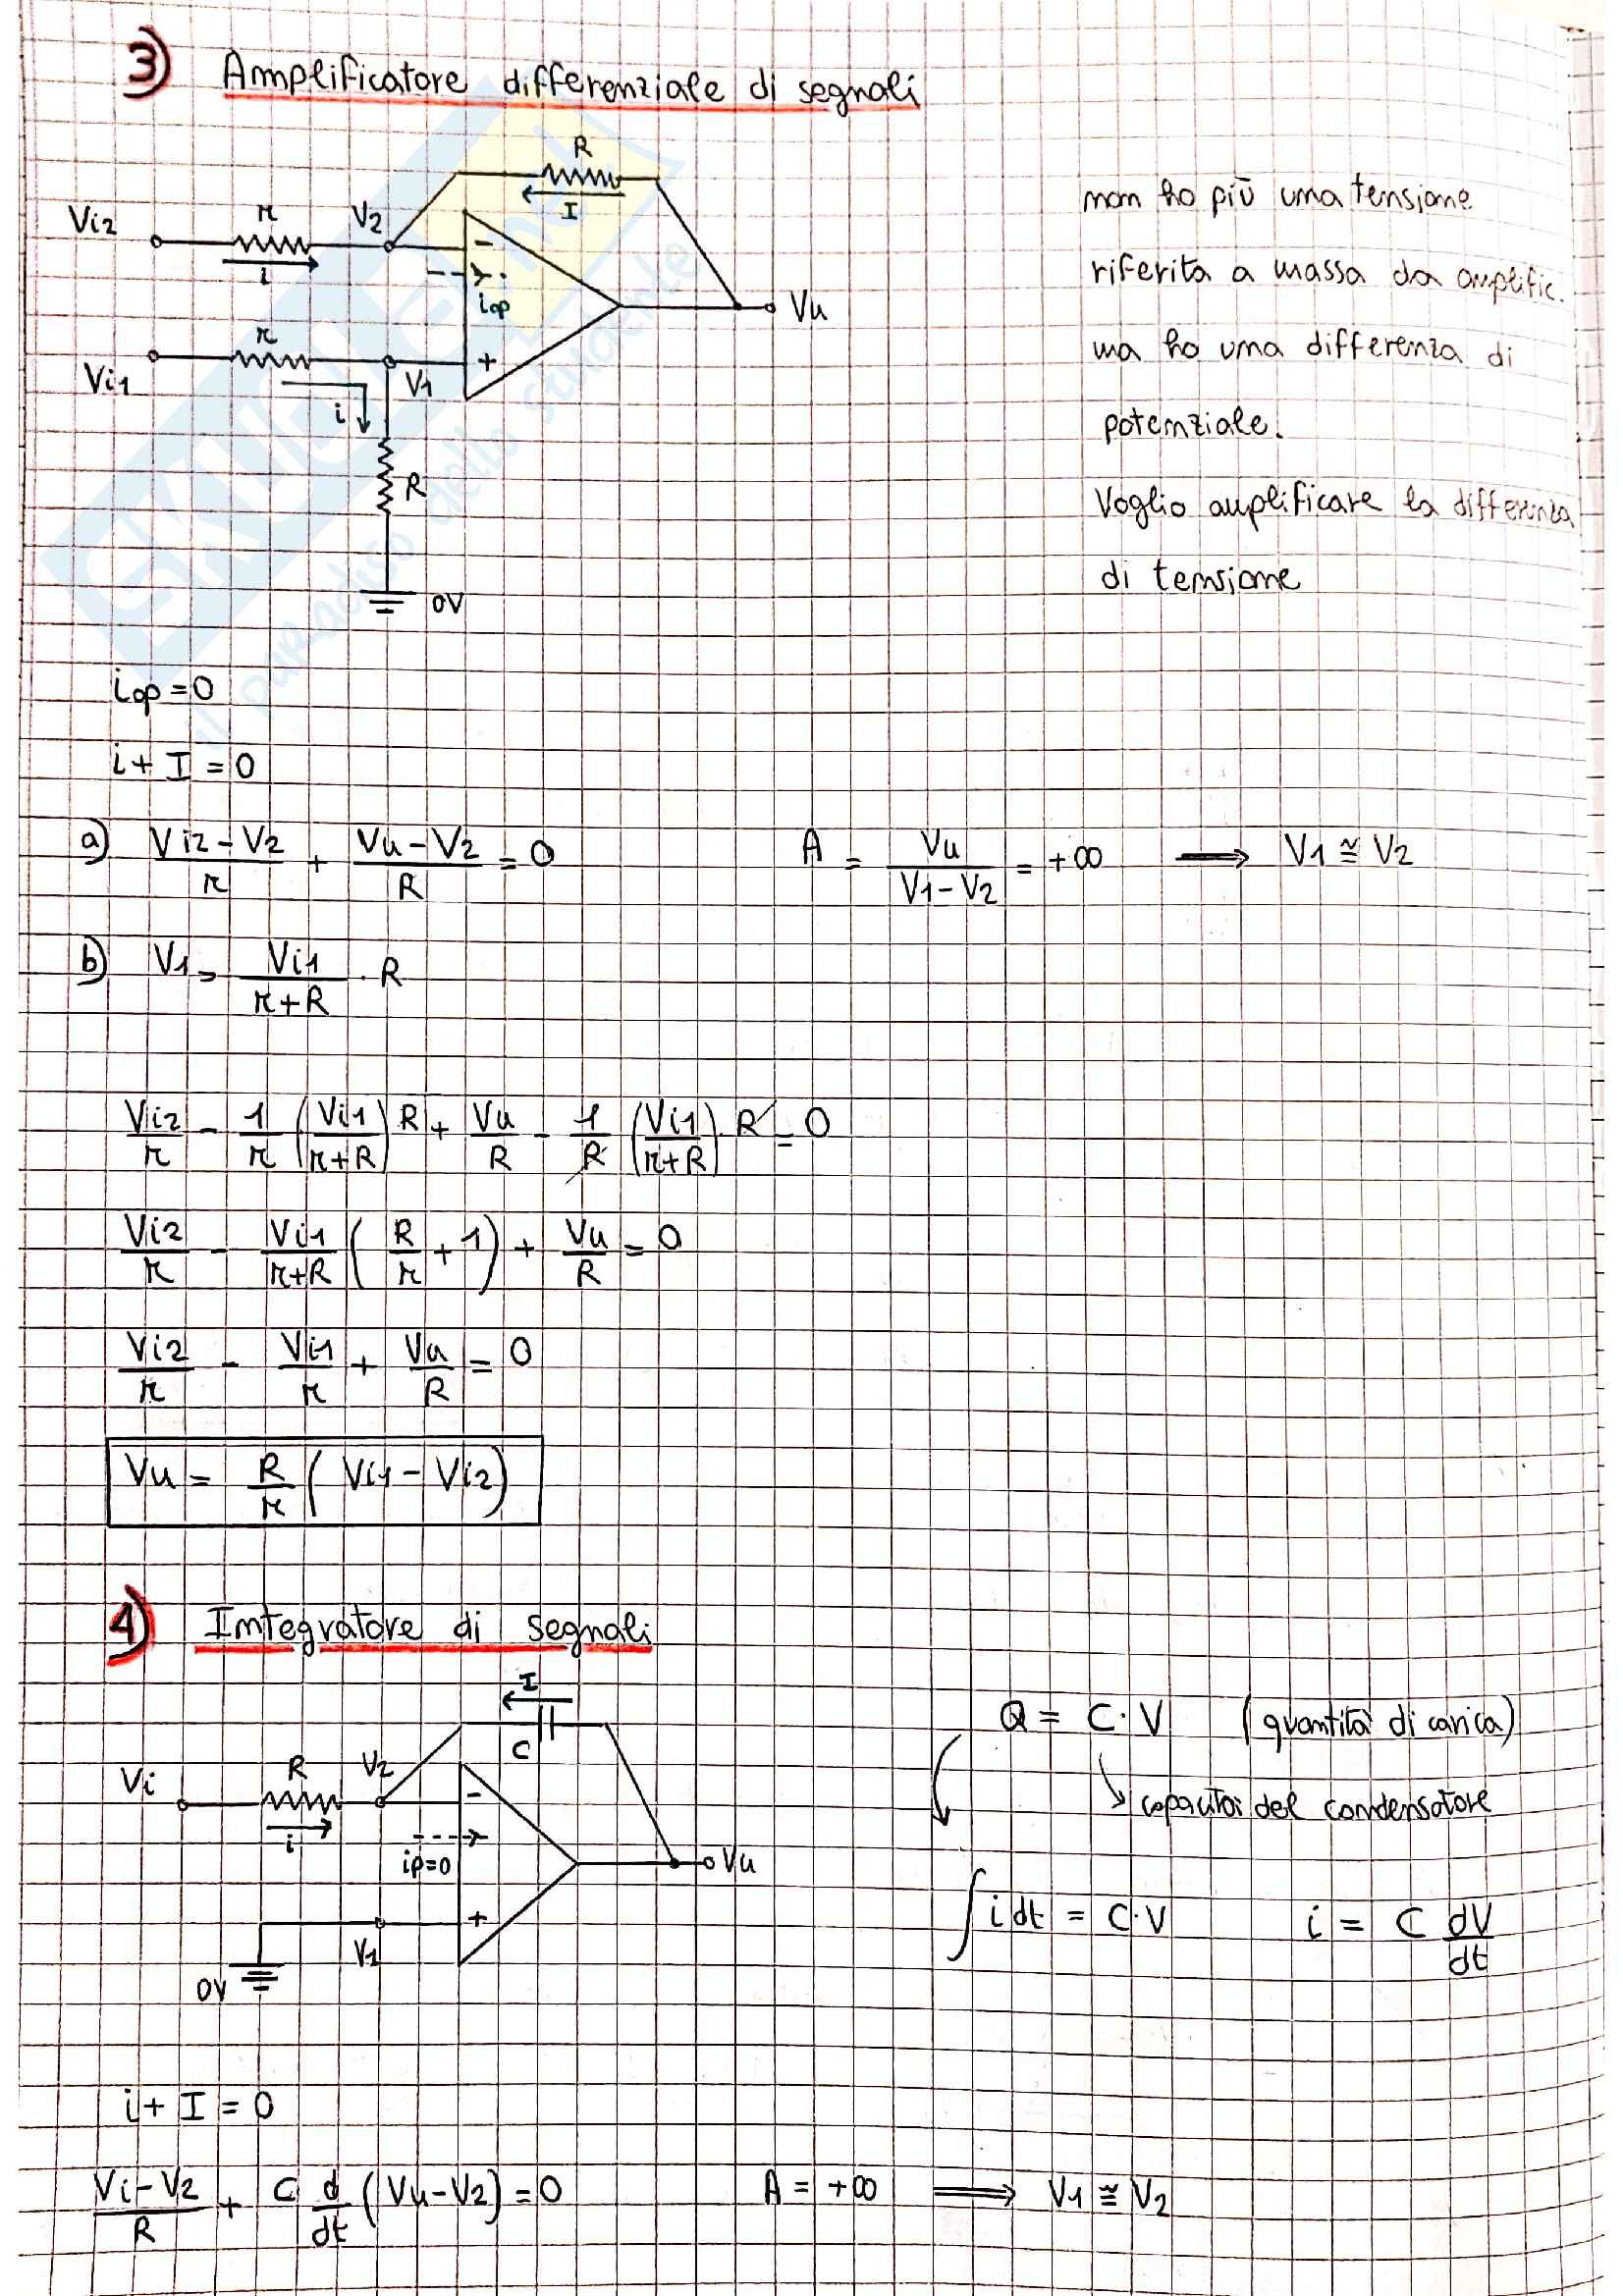 3) Amplificatore differenziale di segnali
R
I
Vi2
r
V2
i
-
iop
Vu
Vi1
r
V1
+
i
R
0V
non ho più una tensione
riferita a massa da amplific.
ma ho una differenza di
potenziale.
Voglio amplificare la differenza
di tensione
SKUOLA.net
il paradiso dello studente
iop = 0
i + I = 0
a) (Vi2 - V2)/r + (Vu - V2)/R = 0
A = Vu/(V1 - V2) = +∞ ⟶ V1 ≅ V2
b) V1 = Vi1/(r+R) · R
Vi2/r - 1/r (Vi1/(r+R)) R + Vu/R - 1/R (Vi1/(r+R)) · R = 0
Vi2/r - Vi1/(r+R) (R/r + 1) + Vu/R = 0
Vi2/r - Vi1/r + Vu/R = 0
Vu = R/r (Vi1 - Vi2)
4) Integratore di segnali
I
C
Vi
R
V2
i
-
ip=0
Vu
+
V1
0V
Q = C · V (quantità di carica)
capacità del condensatore
∫ i dt = C·V
i = C dV/dt
i + I = 0
(Vi - V2)/R + C d/dt (Vu - V2) = 0
A = +∞ ⟹ V1 ≅ V2